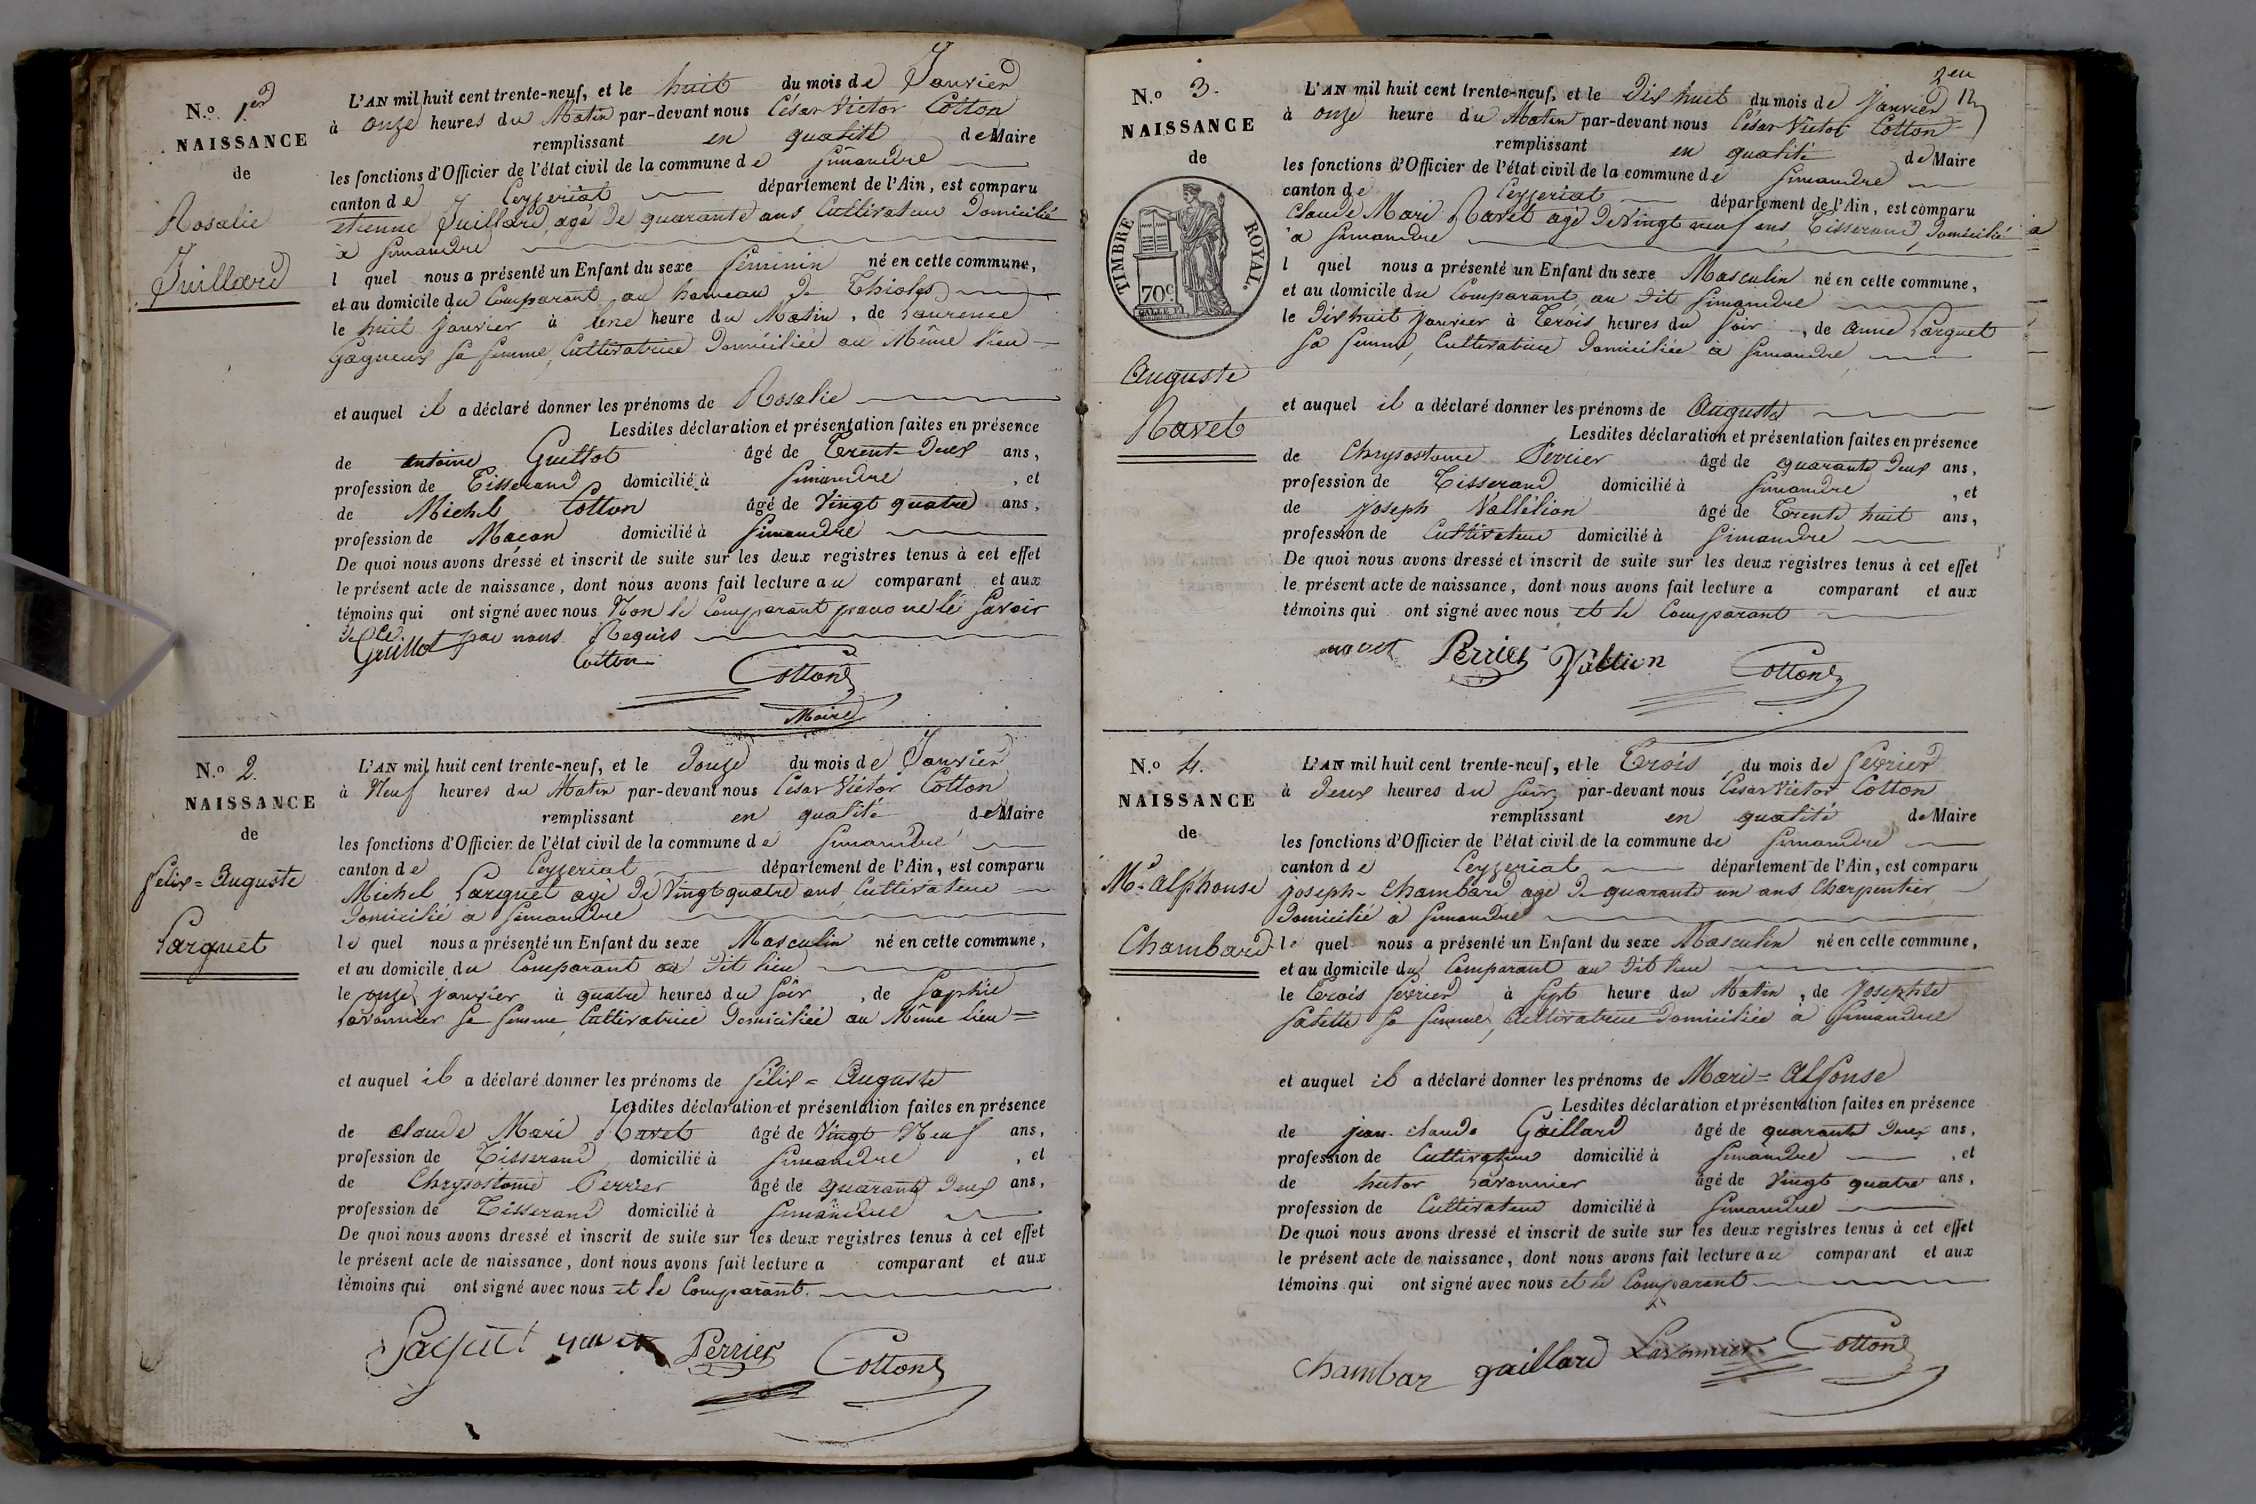 N.o 1.er
NAISSANCE
de
Rosalie
Juillard
L'AN mil huit cent trente-neuf, et le huit du mois de Janvier
à onze heures du Matin par-devant nous César Victor Cotton
remplissant en qualité de Maire
les fonctions d'Officier de l'état civil de la commune de Simandre
canton de Ceyzeriat département de l'Ain, est comparu
etienne Juillard, agé de quarante ans, Cultivateur Domicilié
a Simandre
l quel nous a présenté un Enfant du sexe féminin né en cette commune,
et au domicile du Comparant au hameau de Thioles
le huit Janvier à Une heure du Matin, de Laurence
Gagneux sa femme, Cultivatrice Domiciliée au Même lieu
et auquel il a déclaré donner les prénoms de Rosalie
Lesdites déclaration et présentation faites en présence
de antoine Guillot âgé de Trente Deux ans,
profession de Tisserand domicilié à Simandre, et
de Michel Cotton âgé de Vingt quatre ans,
profession de Macon domicilié à Simandre
De quoi nous avons dréssé et inscrit de suite sur les deux registres tenus à cet effet
le présent acte de naissance, dont nous avons fait lecture au comparant et aux
témoins qui ont signé avec nous Non le Comparant pour ne le Savoir
De Ce par nous Requis
Guillot Cotton
Cotton
Maire
N.o 2.
NAISSANCE
de
felix = Auguste
Parguet
L'AN mil huit cent trente-neuf, et le Douze du mois de Janvier
à Neuf heures du Matin par-devant nous César Victor Cotton
remplissant en qualité de Maire
les fonctions d'Officier de l'état civil de la commune de Simandre
canton de Ceyzeriat département de l'Ain, est comparu
Michel Parguet agé de Vingt quatre ans, Cultivateur
Domicilié a Simandre
le quel nous a présenté un Enfant du sexe Masculin né en cette commune,
et au domicile du Comparant au Dit lieu
le onze Janvier à quatre heures du Soir, de Sophie
Lavonnier sa femme, Cultivatrice Domiciliée au Même lieu =
et auquel il a déclaré donner les prénoms de félix = Auguste
Lesdites déclaration et présentation faites en présence
de claude Mari Ravet âgé de Vingt Neuf ans,
profession de Tisserand domicilié à Simandre, et
de Chrysostome Perrier âgé de quarante Deux ans,
profession de Tisserand domicilié à Simandre
De quoi nous avons dressé et inscrit de suite sur les deux registres tenus à cet effet
le présent acte de naissance, dont nous avons fait lecture a comparant et aux
témoins qui ont signé avec nous et le Comparant.
Perrier Cotton
2eu
N.o 3.
NAISSANCE
de
TIMBRE ROYAL.
70c
Auguste
Ravet
L'AN mil huit cent trente-neuf, et le Dix huit du mois de Janvier
à onze heure du Matin par-devant nous César Victor Cotton
remplissant en qualité de Maire
les fonctions d'Officier de l'état civil de la commune de Simandre
canton de Ceyzeriat département de l'Ain, est comparu
Claude Mari Ravet agé de Vingt neuf ans, Tisserand, Domicilié
a Simandre
l quel nous a présenté un Enfant du sexe Masculin né en cette commune,
et au domicile du Comparant au Dit Simandre
le Dix huit Janvier à Trois heures du Soir, de Anne Parguet
sa femme, Cultivatrice Domiciliée a Simandre
et auquel il a déclaré donner les prénoms de Auguste
Lesdites déclaration et présentation faites en présence
de Chrysostome Perrier âgé de quarante Deux ans,
profession de Tisserand domicilié à Simandre, et
de Joseph Vallélion âgé de Trente huit ans,
profession de Cultivateur domicilié à Simandre
De quoi nous avons dressé et inscrit de suite sur les deux registres tenus à cet effet
le présent acte de naissance, dont nous avons fait lecture a comparant et aux
témoins qui ont signé avec nous et le Comparant
Perrier Cotton
N.o 4.
NAISSANCE
de
Mi Alphonse
Chambard
L'AN mil huit cent trente-neuf, et le Trois du mois de février
à Deux heures du Soir par-devant nous César Victor Cotton
remplissant en qualité de Maire
les fonctions d'Officier de l'état civil de la commune de Simandre
canton de Ceyzeriat département de l'Ain, est comparu
Joseph Chambard agé de quarante un ans Charpentier
Domicilié a Simandre
le quel nous a présenté un Enfant du sexe Masculin né en cette commune,
et au domicile du Comparant au Dit lieu
le Trois février à Sept heure du Matin, de Josephte
sa femme, Cultivatrice Domiciliée a Simandre
et auquel il a déclaré donner les prénoms de Mari = Alfonse
Lesdites déclaration et présentation faites en présence
de jean claude Gaillard âgé de quarante Deux ans,
profession de Cultivateur domicilié à Simandre, et
de hector Lavonnier âgé de Vingt quatre ans,
profession de Cultivateur domicilié à Simandre
De quoi nous avons dressé et inscrit de suite sur les deux registres tenus à cet effet
le présent acte de naissance, dont nous avons fait lecture au comparant et aux
témoins qui ont signé avec nous et le Comparant
Chambar gaillard Lavonnier Cotton